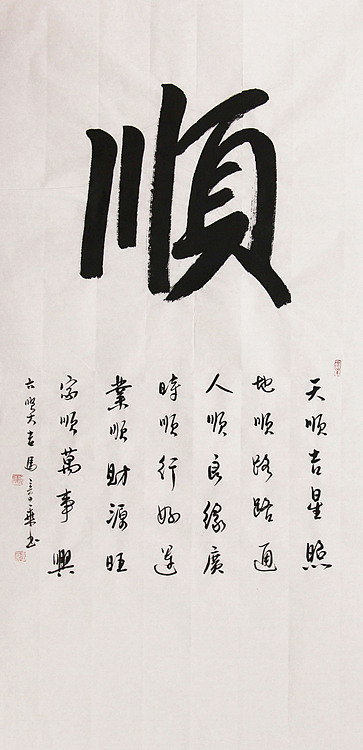 順
天順吉星照
地順路路通
人順良緣廣
時順行好運
業順財源旺
家順萬事興
六順大吉馬章乘书